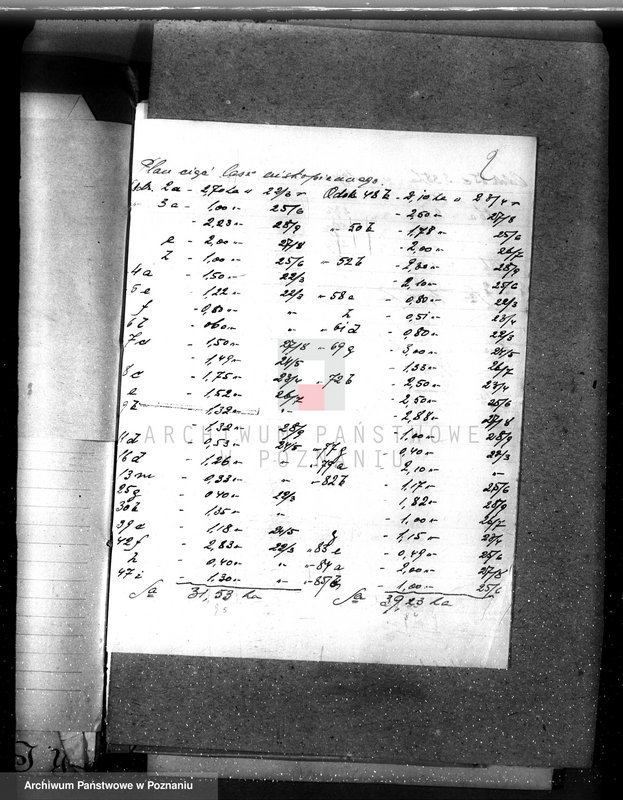 2
Plan cięć lasu niskopiennego
Odz. 2a - 2,70 ha 22/3 Oddz. 48b - 2,10 ha 23/4
3a - 1,00 25/6 - 2,50 27/8
- 2,23 28/9 50b - 1,78 25/6
e - 2,00 27/8 - 2,00 26/7
b - 1,00 25/6 52b - 2,30 28/9
4a - 1,50 22/3 - 2,10 25/6
5e - 1,22 22/3 58a - 0,80 22/3
f - 0,80 " - 0,51 23/4
6b - 0,60 " 61d - 0,80 22/3
7d - 1,50 27/8 69g - 3,00 24/5
- 1,49 24/5 - 1,33 26/7
8c - 1,75 23/4 72b - 2,50 23/4
e - 1,52 26/7 - 2,50 25/6
9b - 1,32 " - 2,88 27/8
- 1,32 28/9 - 1,00 28/9
11d - 1,53 24/5 77g - 0,40 22/3
16d - 1,26 " 77a - 2,10 "
13m - 0,33 " 82b - 1,17 25/6
25g - 0,40 22/3 - 1,82 28/9
30b - 1,35 " - 1,00 26/7
39c - 1,18 24/5 g - 1,15 23/4
42f - 2,83 22/3 83e - 0,49 25/6
- 0,40 " 84a - 2,00 27/8
47i - 1,30 " 85b - 1,00 25/6
Sa 31,53 ha Sa 39,23 ha
ARCHIWUM PAŃSTWOWE
W POZNANIU
Archiwum Państwowe w Poznaniu